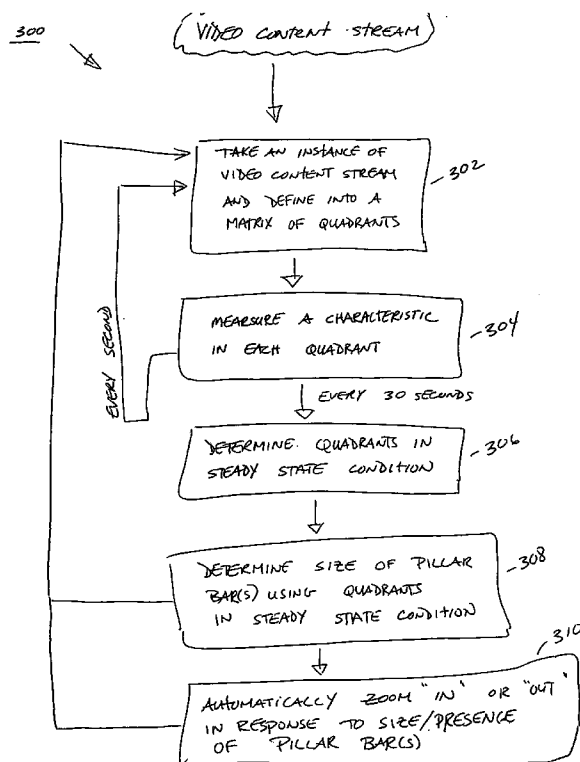 300
VIDEO CONTENT STREAM
TAKE AN INSTANCE OF
VIDEO CONTENT STREAM
AND DEFINE INTO A
MATRIX OF QUADRANTS
302
EVERY SECOND
MEARSURE A CHARACTERISTIC
IN EACH QUADRANT
304
EVERY 30 SECONDS
DETERMINE QUADRANTS IN
STEADY STATE CONDITION
306
DETERMINE SIZE OF PILLAR
BAR(S) USING QUADRANTS
IN STEADY STATE CONDITION
308
310
AUTOMATICALLY ZOOM "IN" OR "OUT"
IN RESPONSE TO SIZE/PRESENCE
OF PILLAR BAR(S)